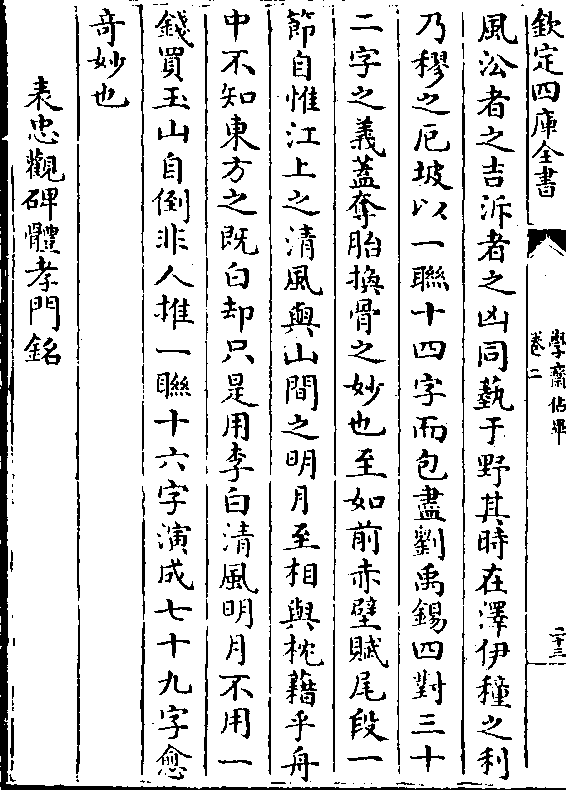 欽定四庫全書
學齋佔畢
卷二
二十三
風㳂者之吉泝者之凶同藝于野其時在澤伊穜之利
乃穋之厄坡以一聯十四字而包盡劉禹錫四對三十
二字之義蓋奪胎換骨之妙也至如前赤壁賦尾段一
節自惟江上之清風與山間之明月至相與枕藉乎舟
中不知東方之既白却只是用李白清風明月不用一
錢買玉山自倒非人推一聯十六字演成七十九字愈
奇妙也
表忠觀碑體孝門銘